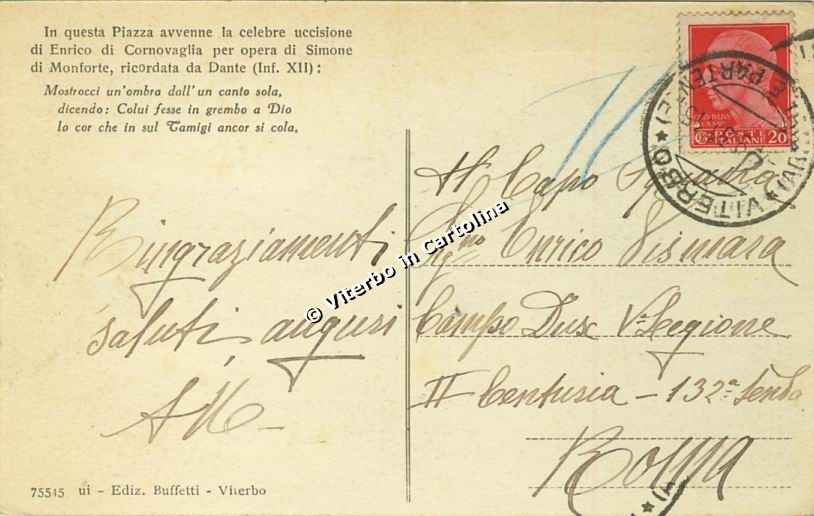 In questa Piazza avvenne la celebre uccisione
di Enrico di Cornovaglia per opera di Simone
di Monforte, ricordata da Dante (Inf. XII) :
Mostrocci un'ombra dall'un canto sola,
dicendo: Colui fesse in grembo a Dio
lo cor che in sul Tamigi ancor si cola.
POSTE
ITALIANE 20
VITERBO
PARTENZE
Al Capo Squadra
Sig.no Enrico Vismara
Campo Dux Vª Legione
II Centuria - 132ª Tenda
Roma
Ringraziamenti
saluti, auguri
© Viterbo in Cartolina
75545 ui - Ediz. Buffetti - Viterbo